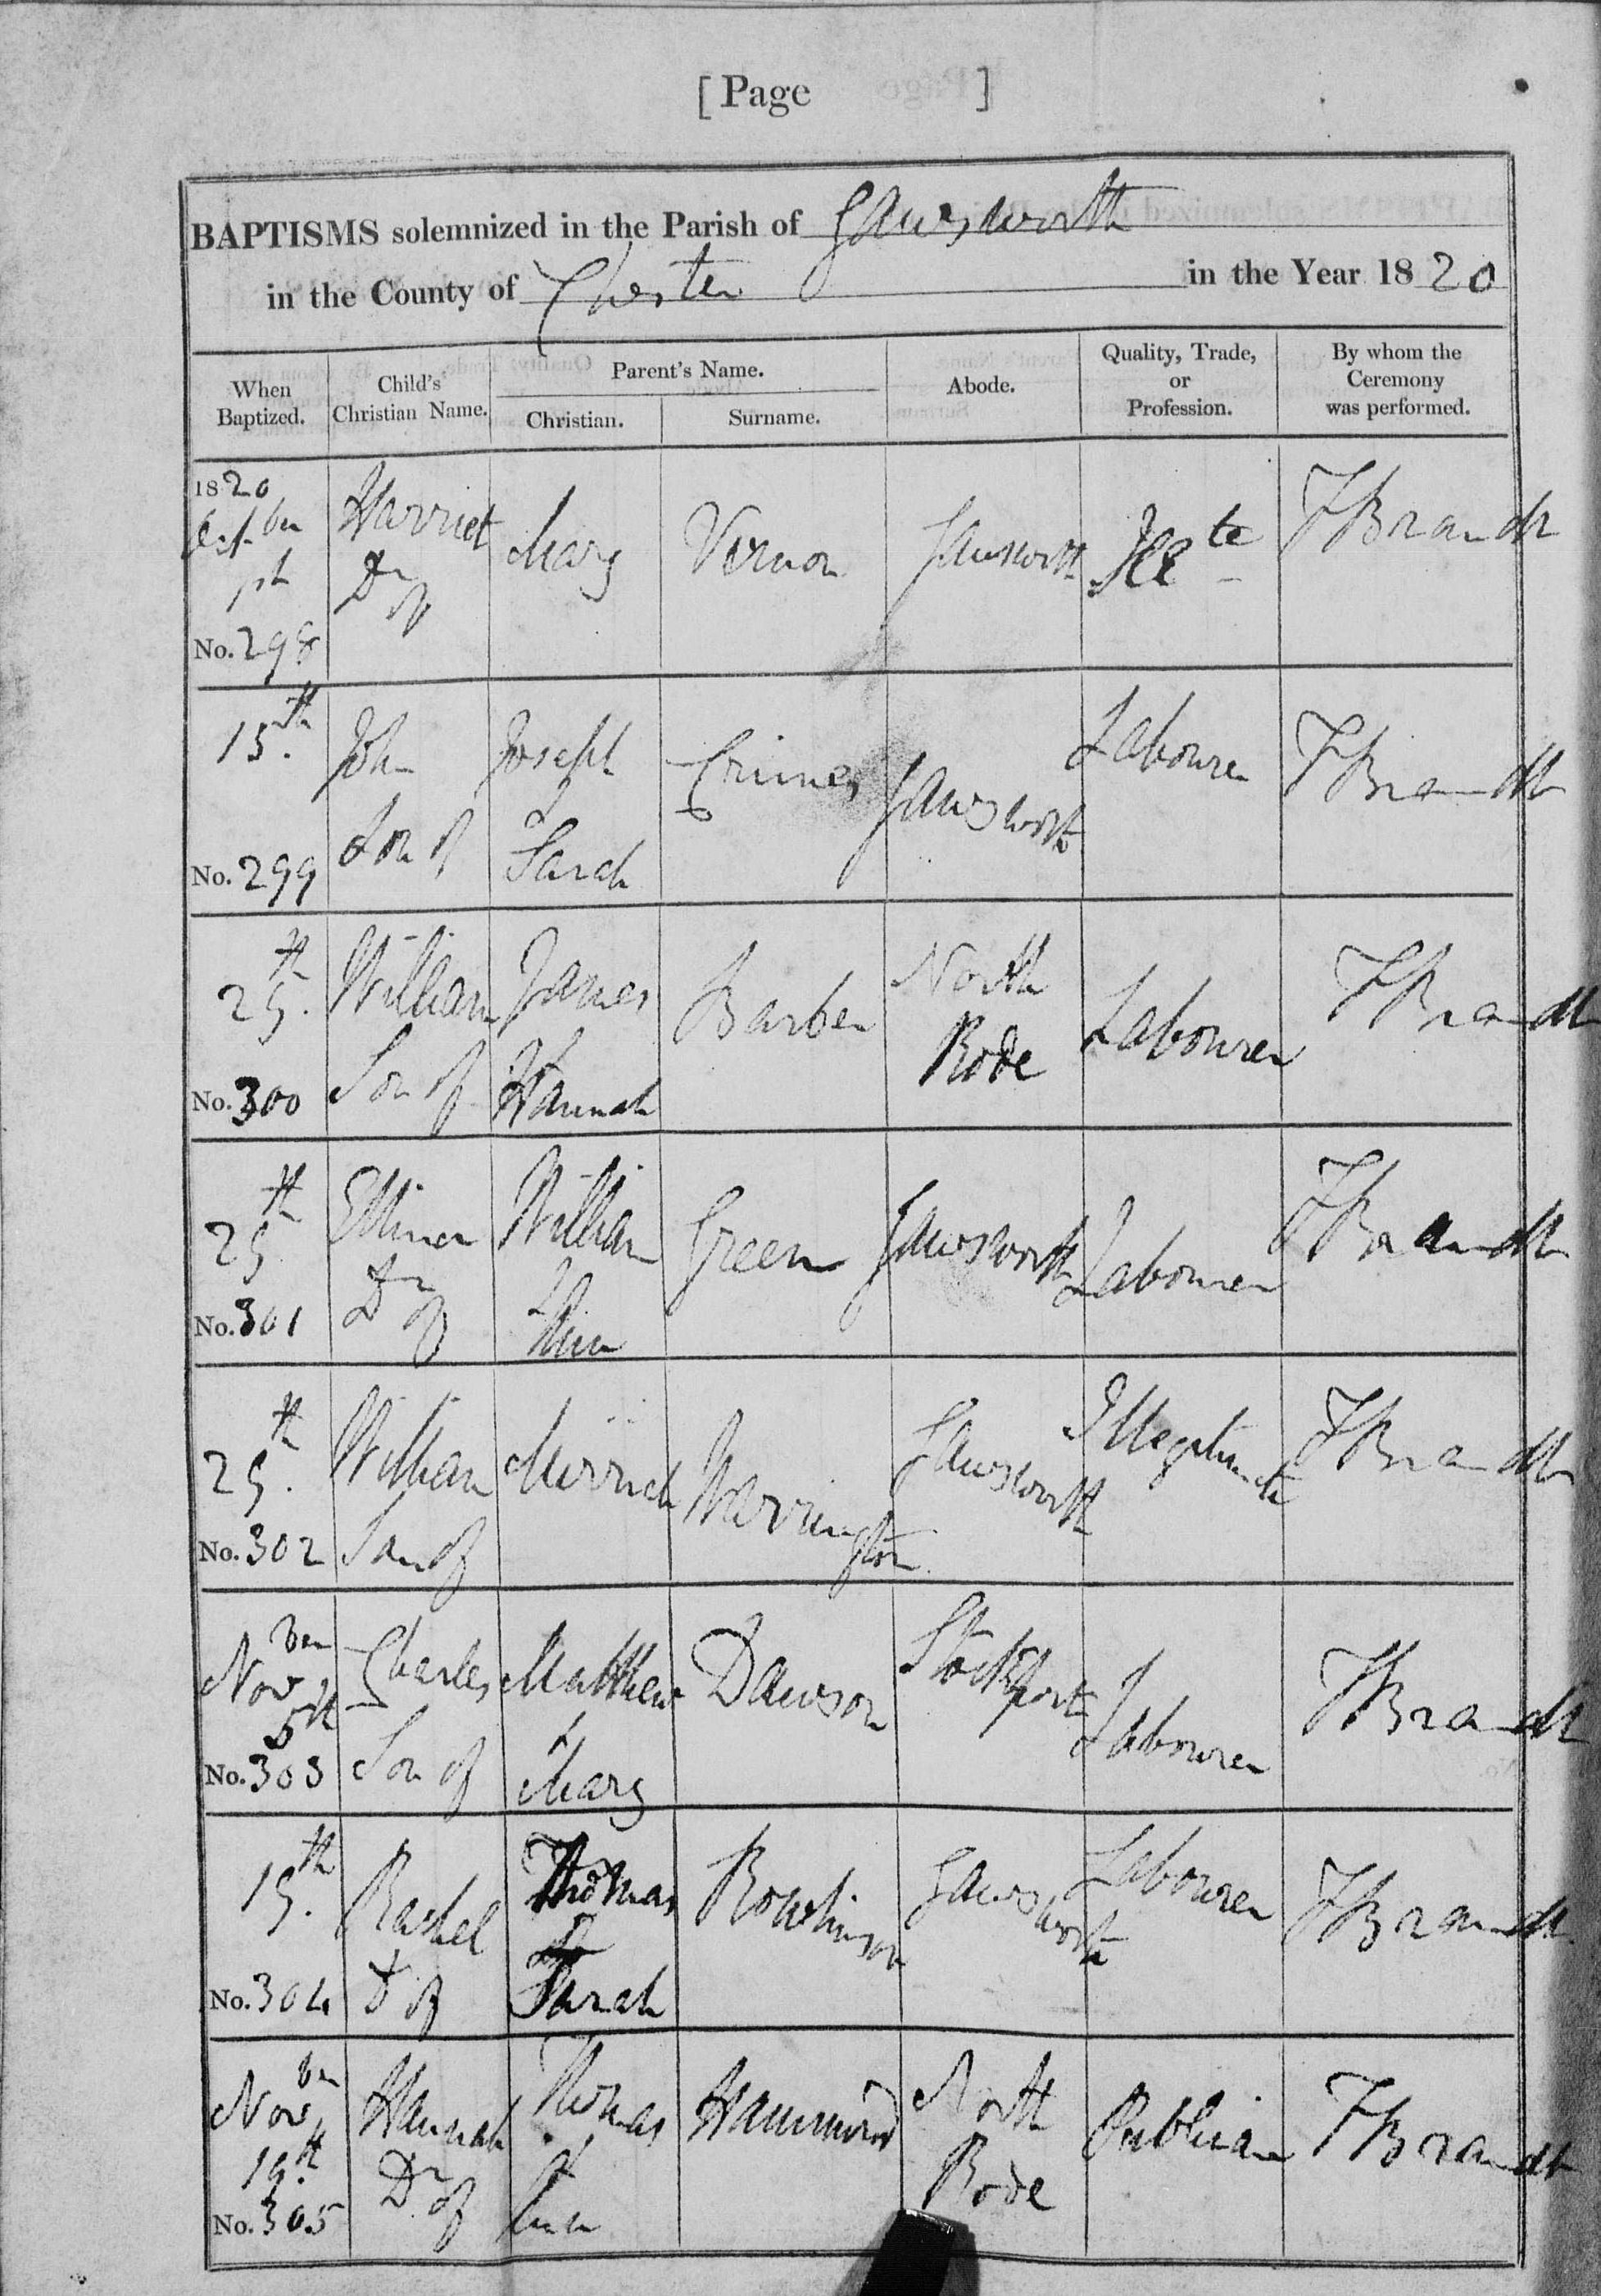 [ Page ]
BAPTISMS solemnized in the Parish of Gawsworth
in the County of Chester in the Year 1820
When Baptized.
Child's Christian Name.
Parent's Name.
Christian.
Surname.
Abode.
Quality, Trade, or Profession.
By whom the Ceremony was performed.
1820
Harriet Dr of
Mary
Vernon
Gawsworth
Ille te
J Brandt
No. 298
15th
John Son of
Joseph & Sarah
Crimes
Gawsworth
Labourer
J Brandt
No. 299
25th
William Son of
James & Hannah
Barber
North Rode
Labourer
J Brandt
No. 300
25th
Elliner Dr of
William & Ann
Green
Gawsworth
Labourer
J Brandt
No. 301
25th
William Son of
Warrington
Gawsworth
Illegitimate
J Brandt
No. 302
Novber 5th
Charles Son of
Matthew & Mary
Dawson
Stockport
Labourer
J Brandt
No. 303
Rachel D of
Thomas & Sarah
Rowlinson
Gawsworth
Labourer
J Brandt
No. 304
Novber
Hannah Dr of
Thomas & Ann
Hammond
North Rode
Publican
J Brandt
No. 305